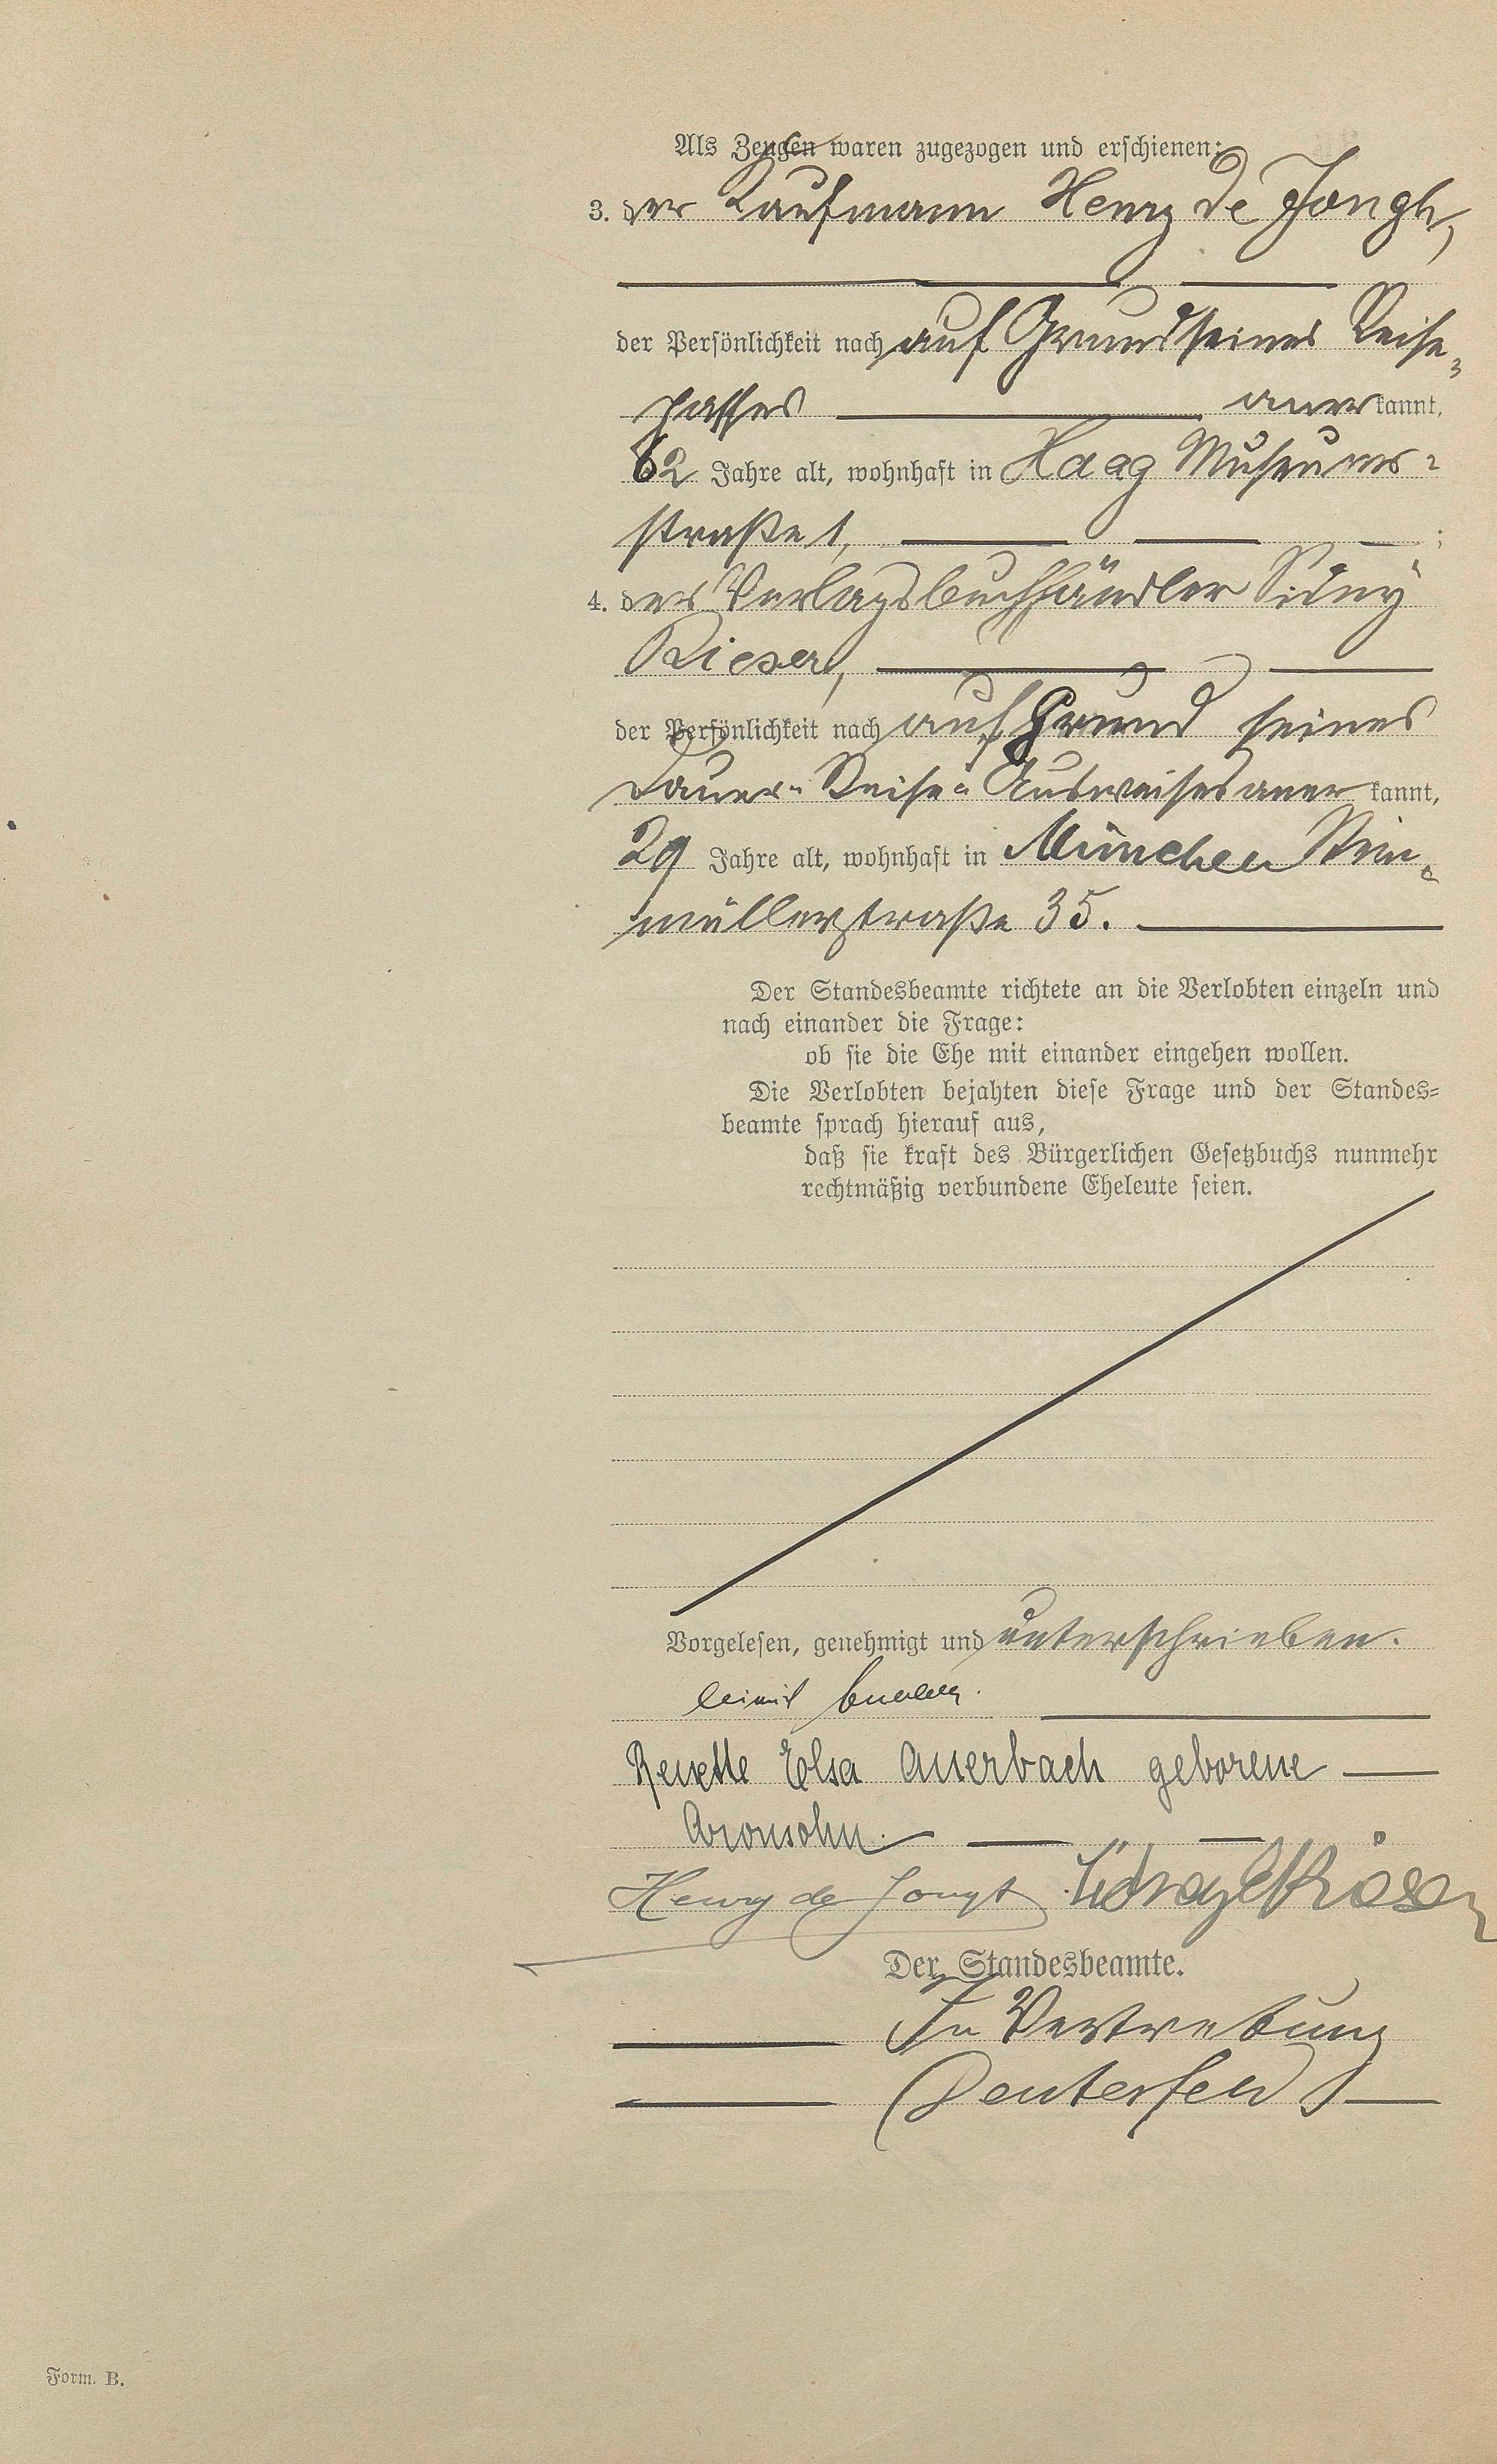 Als Zeugen waren zugezogen und erschienen:
3. der Kaufmann Henry de Jongh,
der Persönlichkeit nach auf Grund seines Reise-
passes anerkannt,
62 Jahre alt, wohnhaft in Haag Museums-
straße 1, ;
4. der Verlagsbuchhändler Sidney
Rieser,
der Persönlichkeit nach auf Grund seines
Dauer-Reise-Ausweises anerkannt,
29 Jahre alt, wohnhaft in München
müllerstraße 35.
Der Standesbeamte richtete an die Verlobten einzeln und
nach einander die Frage:
ob sie die Ehe mit einander eingehen wollen.
Die Verlobten bejahten diese Frage und der Standes-
beamte sprach hierauf aus,
daß sie kraft des Bürgerlichen Gesetzbuchs nunmehr
rechtmäßig verbundene Eheleute seien.
Vorgelesen, genehmigt und unterschrieben.
Elsa Auerbach geborene
Aronsohn.
Henry de Jongh
Der Standesbeamte.
In Vertretung